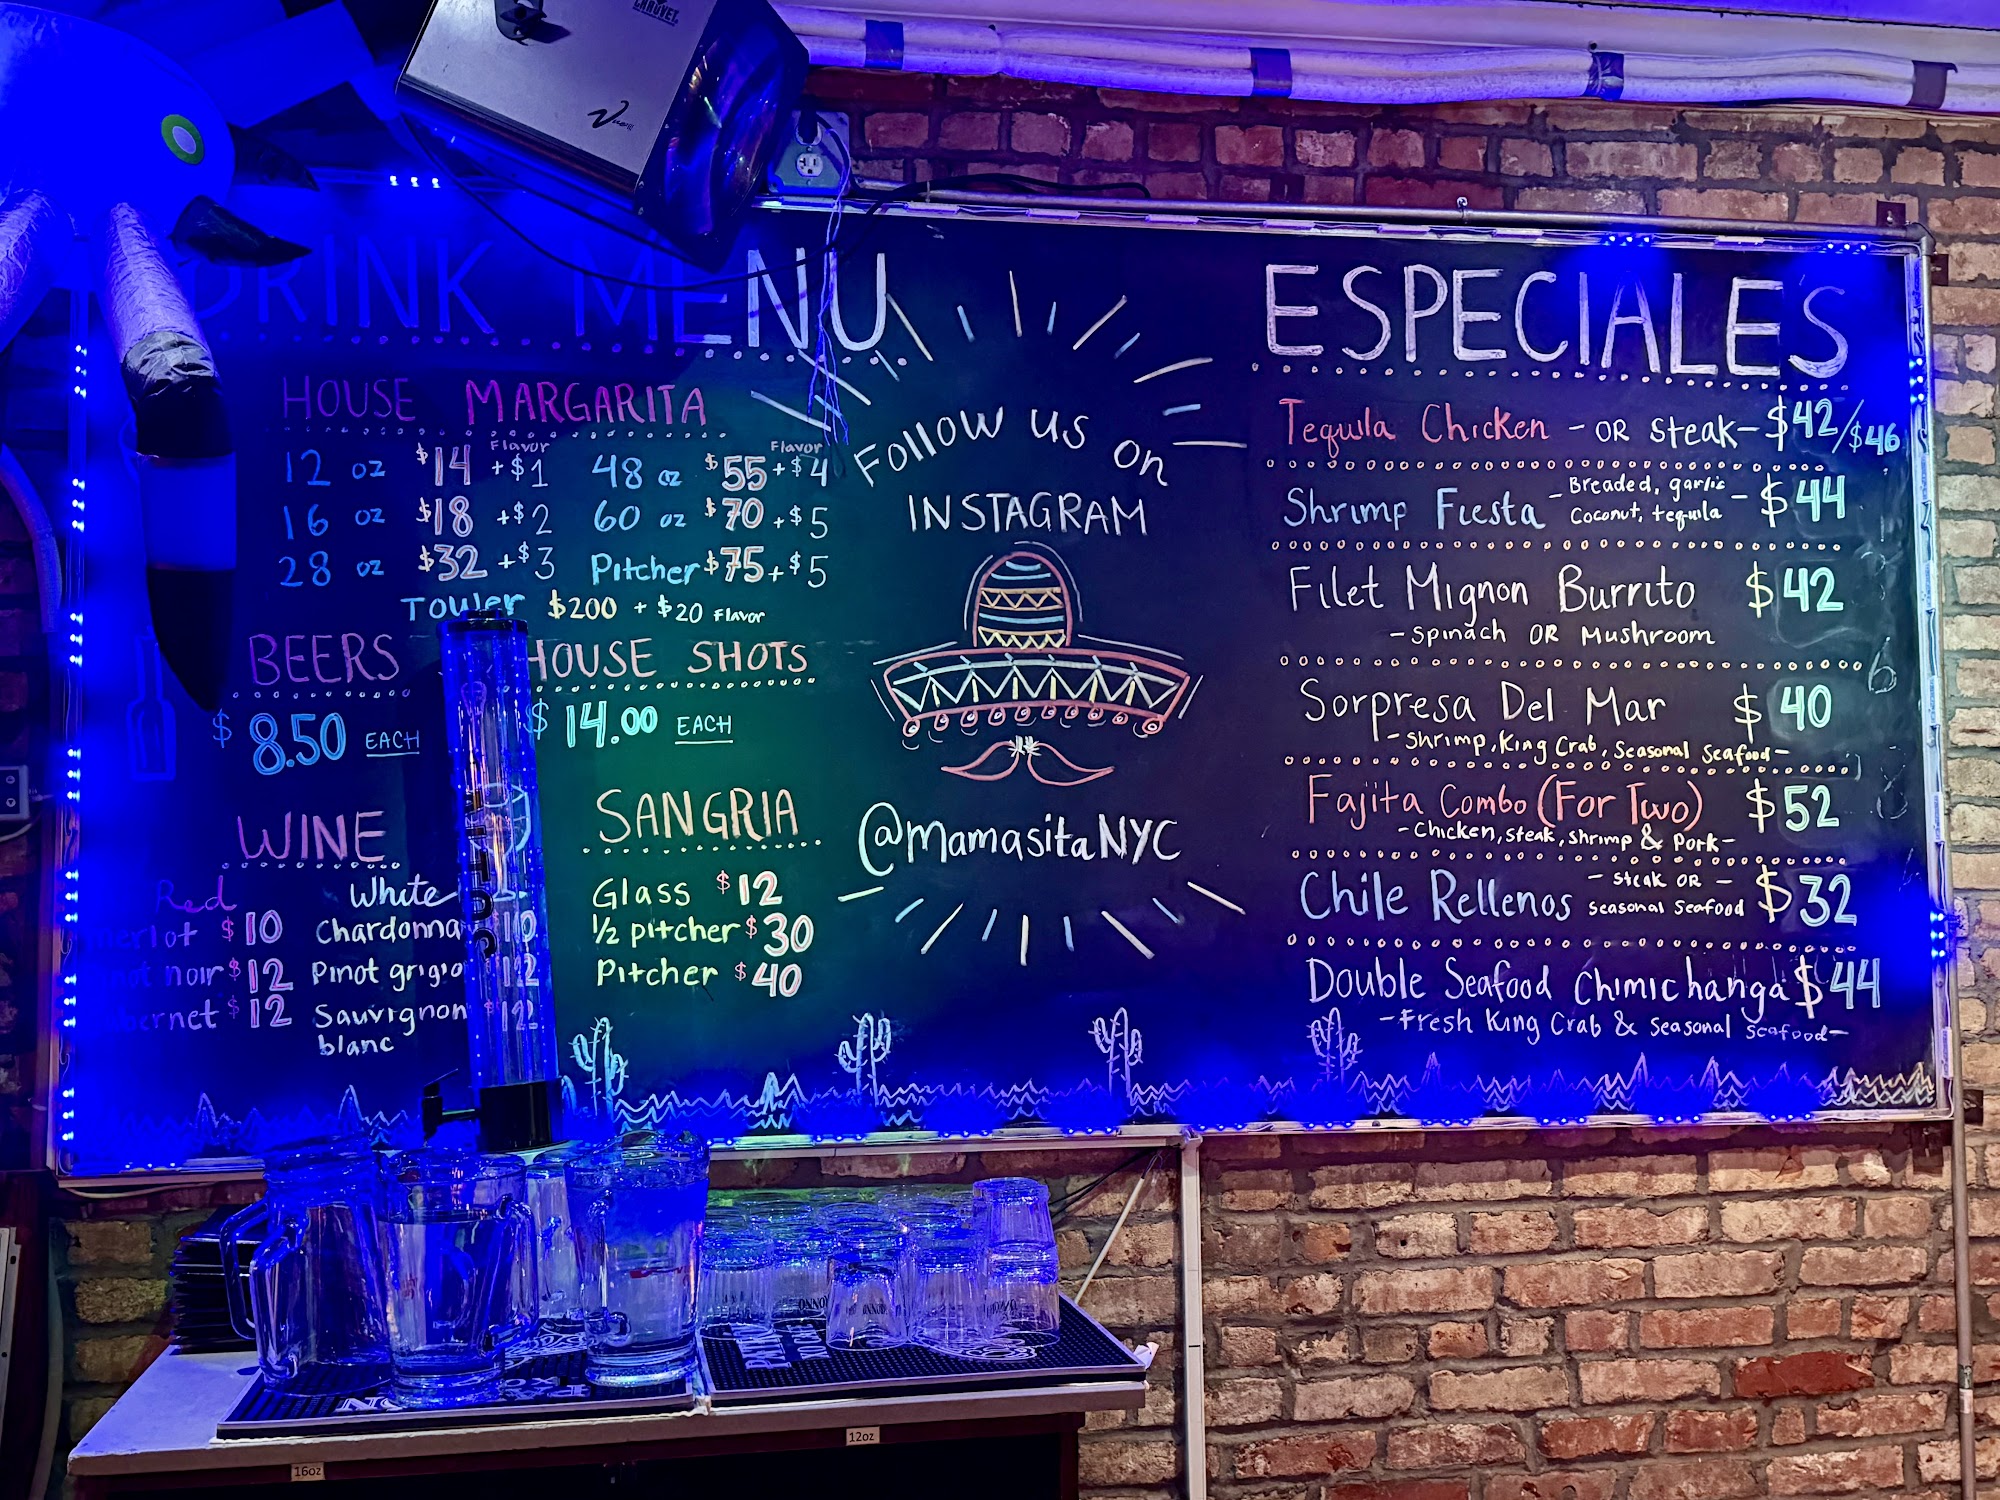 CHAUVET
DRINK MENU
HOUSE MARGARITA
Flavor
12 oz $14 +$1
16 oz $18 +$2
28 oz $32 +$3
Flavor
48 oz $55 +$4
60 oz $70 +$5
Pitcher $75 +$5
Tower $200 + $20 Flavor
BEERS
$8.50 EACH
HOUSE SHOTS
$14.00 EACH
WINE
Red
merlot $10
noir $12
$12
White
Chardonnay $10
Pinot grigio $12
Sauvignon $12
blanc
SANGRIA
Glass $12
1/2 pitcher $30
Pitcher $40
Follow us on
INSTAGRAM
@mamasitaNYC
ESPECIALES
Tequila Chicken - OR Steak - $42/$46
Shrimp Fiesta - Breaded, garlic - $44
Coconut, tequila
Filet Mignon Burrito $42
- Spinach OR Mushroom
Sorpresa Del Mar $40
- Shrimp, King Crab, Seasonal Seafood -
Fajita Combo (For Two) $52
- Chicken, steak, shrimp & Pork -
Chile Rellenos - Steak OR - $32
Seasonal Seafood
Double Seafood Chimichanga $44
- Fresh King Crab & Seasonal Seafood -
16oz
12oz